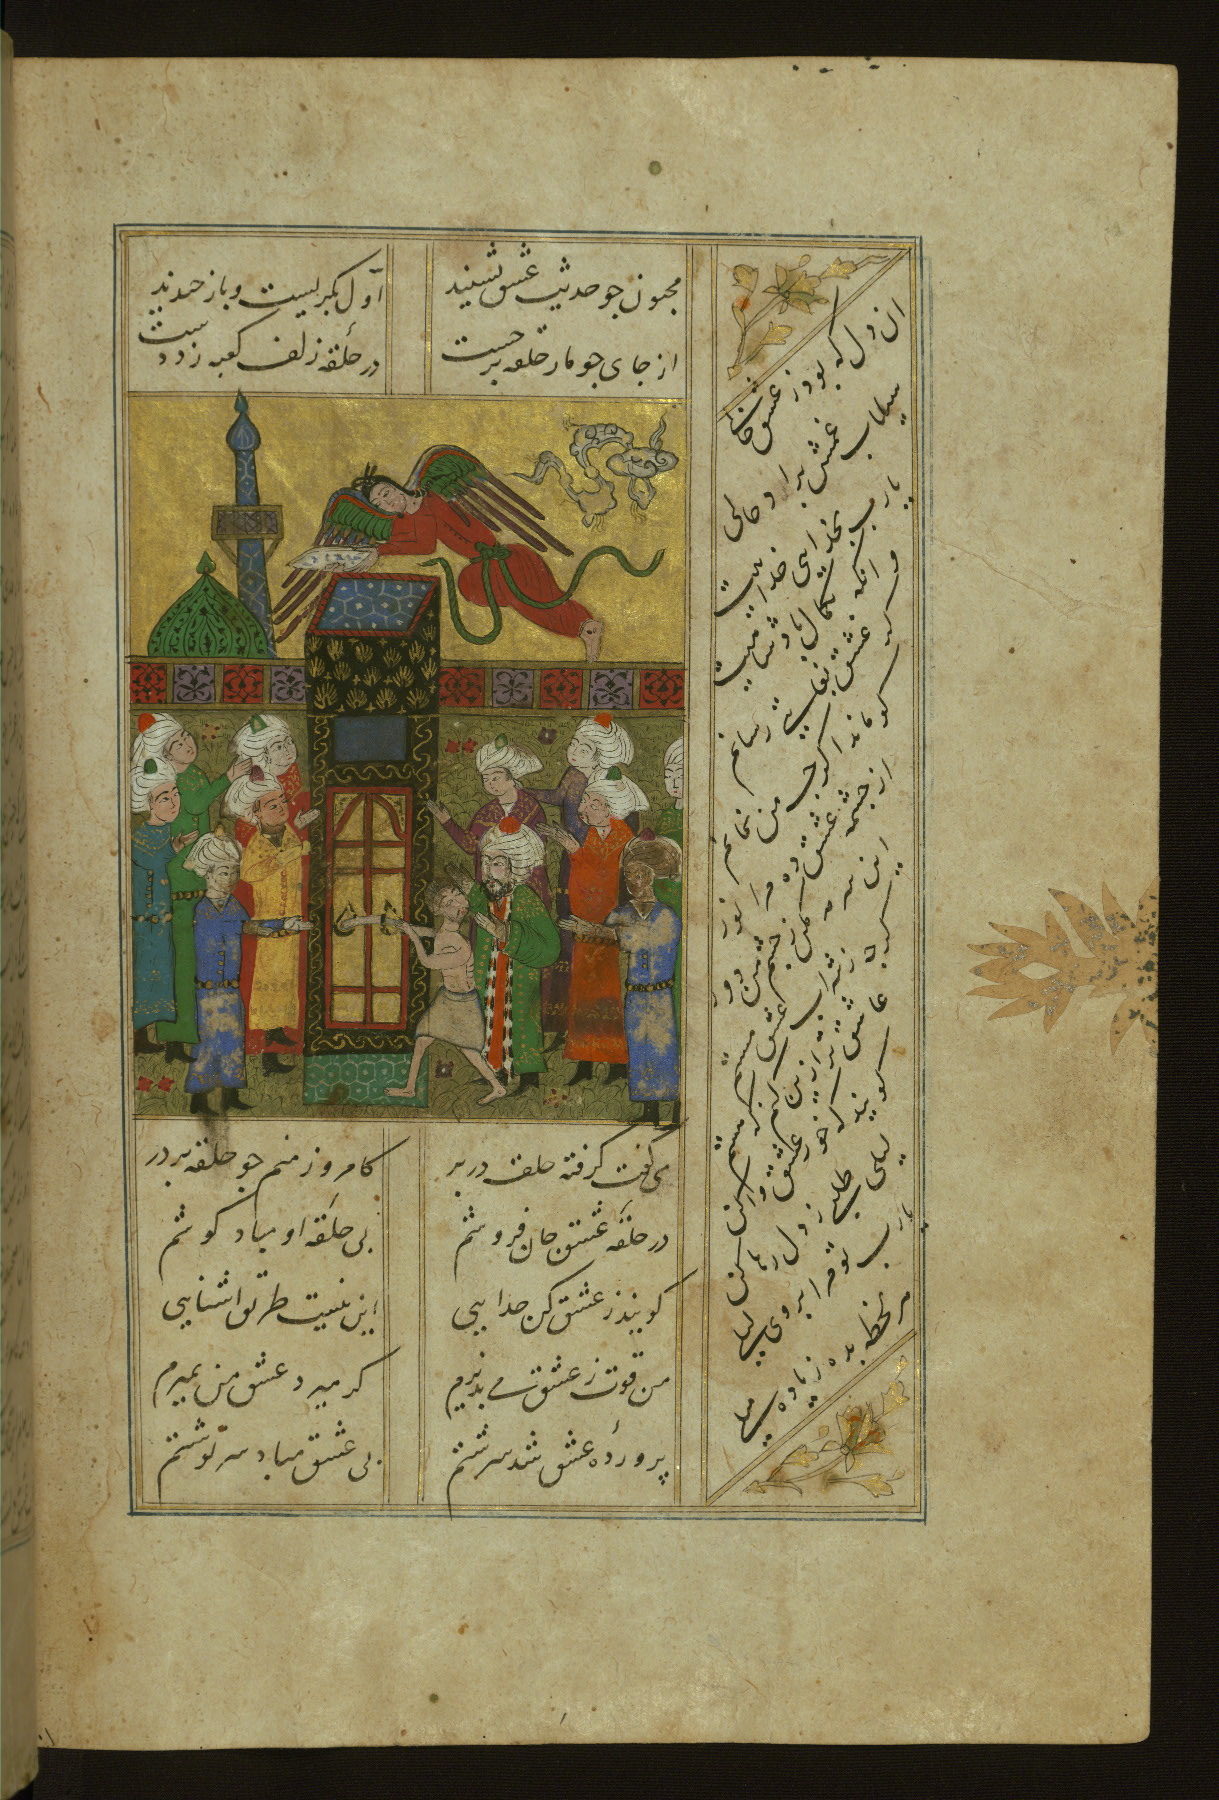 مجنون جو حدیث عشق بشنید
اول بگریست و باز خندید
از جای جو مار حلقه برجست
در حلقهٔ زلف کعبه زد دست
می گفت گرفته حلقه در بر
کامروز منم جو حلقه بر در
در حلقه عشق جان فروشم
بی حلقه او مباد کوشم
کویند ز عشق کن جدایی
این نیست طریق اشنایی
من قوت ز عشق می پذیرم
کر میرد عشق من بمیرم
پروردهٔ عشق شد سرشتم
بی عشق مباد سرنوشتم
ان دل که بود ز عشق خالی
سیلاب غمش براد حالی
یارب بخدایی خداییت
وانکه بکمال پادشاییت
کز عشق بغایتی رسانم
کو ماند اکرجه من نمانم
از جشمه عشق ده مرا نور
این سرمه مکن ز جشم من دور
کرجه ز شراب عشق مستم
عاشق تر ازین کنم که هستم
کویند که خو ز عشق واکن
لیلی طلبی ز دل رها کن
یارب تو مرا بروی لیلی
هر لحظه بده زیاده میلی